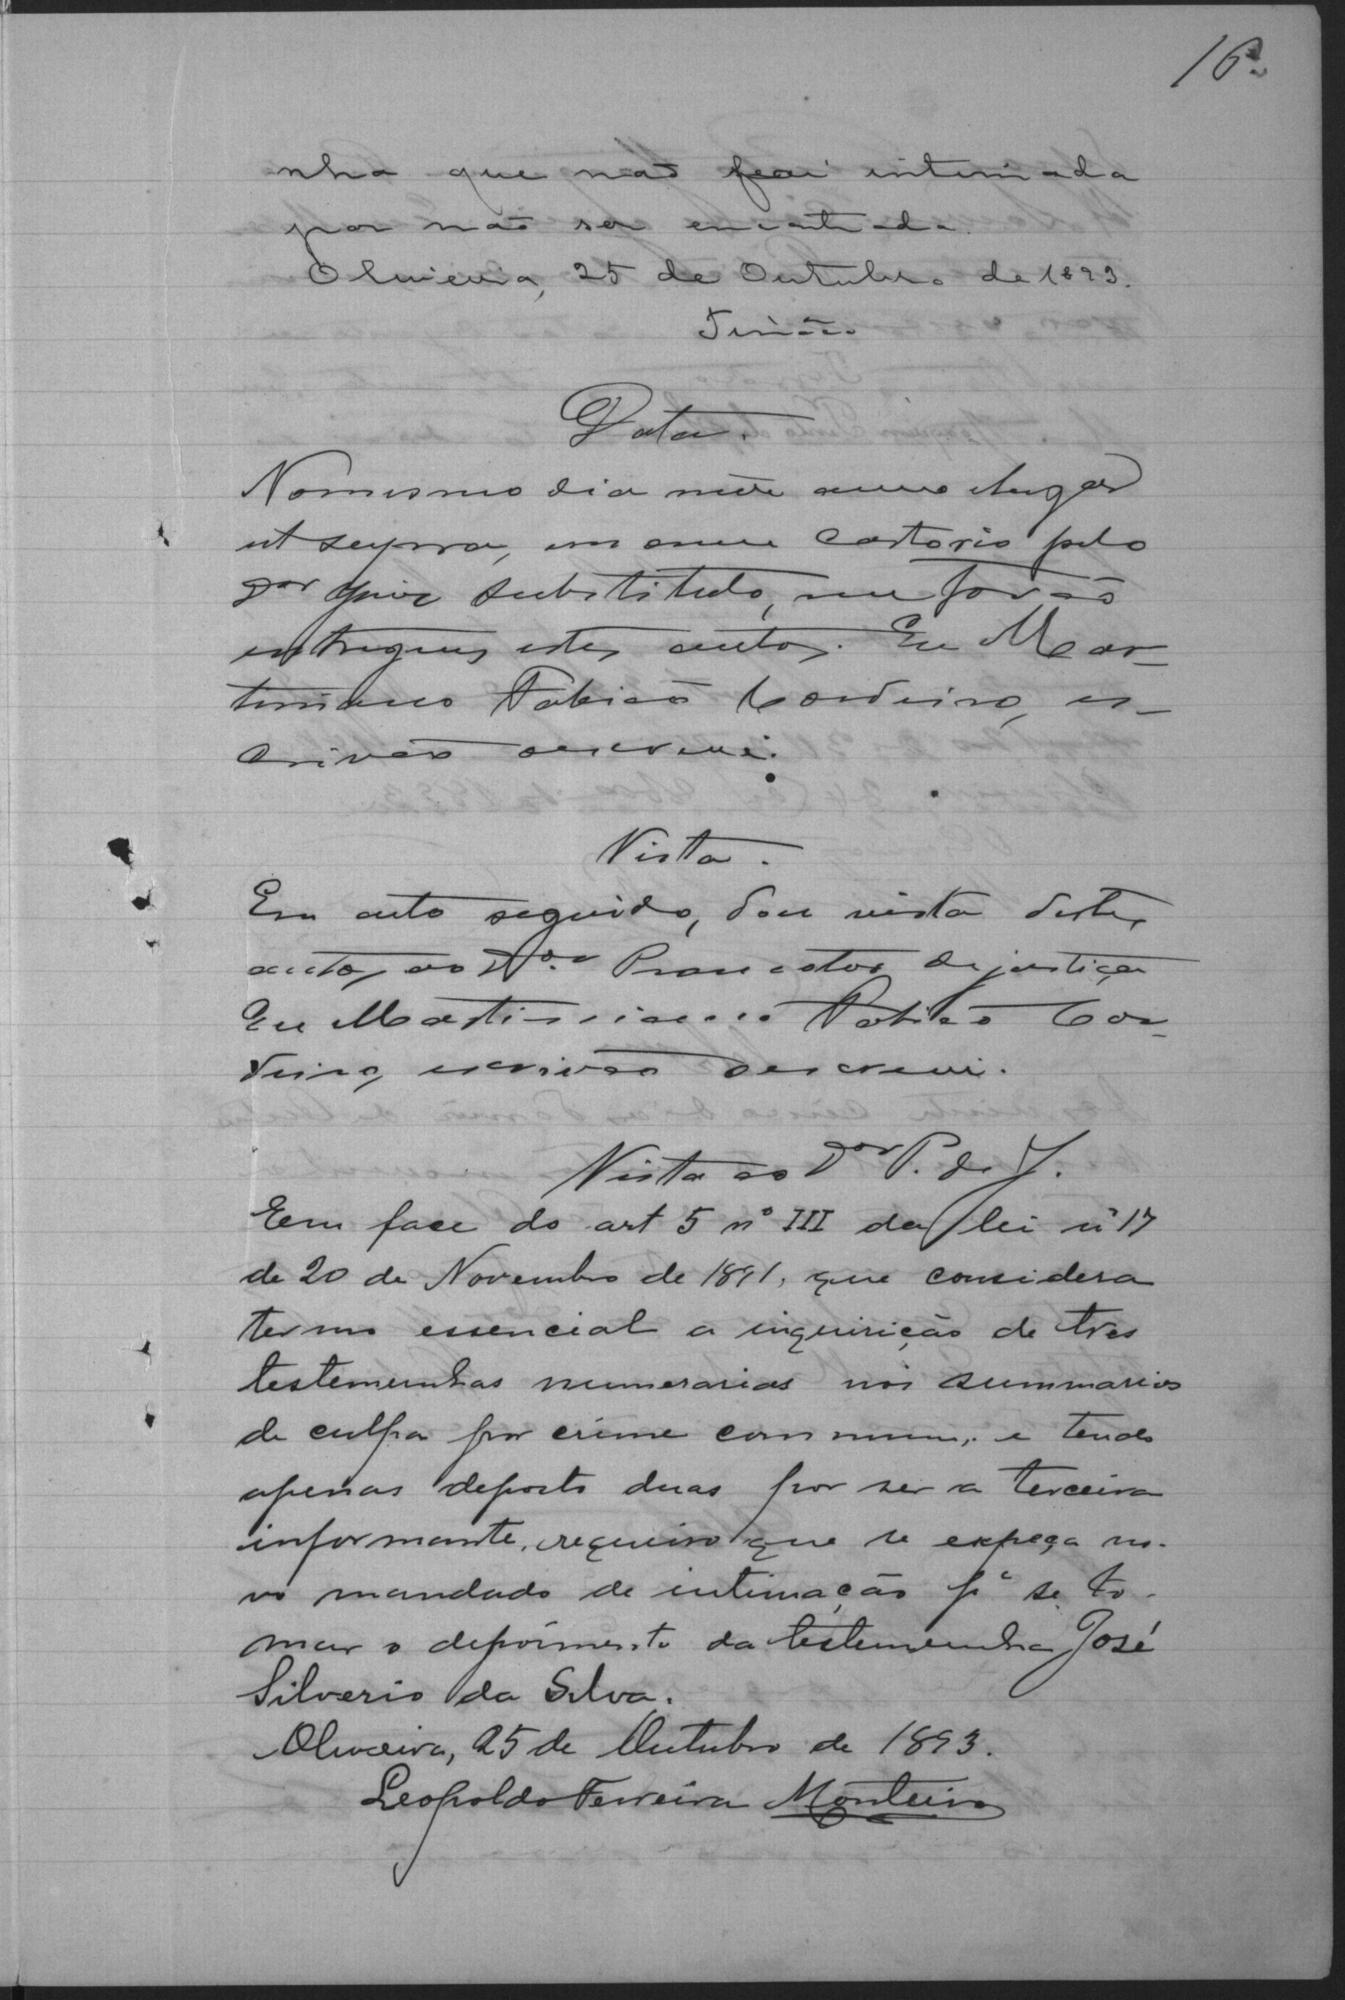 16
nha que não foi intimada
por não ser encontrada.
Oliveira, 25 de Outubro de 1893.
Data.
No mesmo dia mez anno e lugar
ut supra, em meu cartorio pelo
Dor Juiz substituto, me forão
entregues estes autos. Eu Mar-
tiniano Fabião Cordeiro, es-
crivão o escrevi.
Vista.
Em acto seguido, dou vista destes
autos ao Dor Promotor de justiça
Eu Martiniano Fabião Cor-
deiro, escrivão o escrevi.
Vista ao Dor P. de J.
Em face do art 5 nº III da lei nº 17
de 20 de Novembro de 1891, que considera
termo essencial a inquirição de tres
testemunhas numerarias nos summarios
de culpa por crime commum, e tendo
apenas deposto duas por ser a terceira
informante, requeiro que se expeça no-
vo mandado de intimação pª se to-
mar o depoimento da testemunha José
Silverio da Silva.
Oliveira, 25 de Outubro de 1893.
Leopoldo Ferreira Monteiro